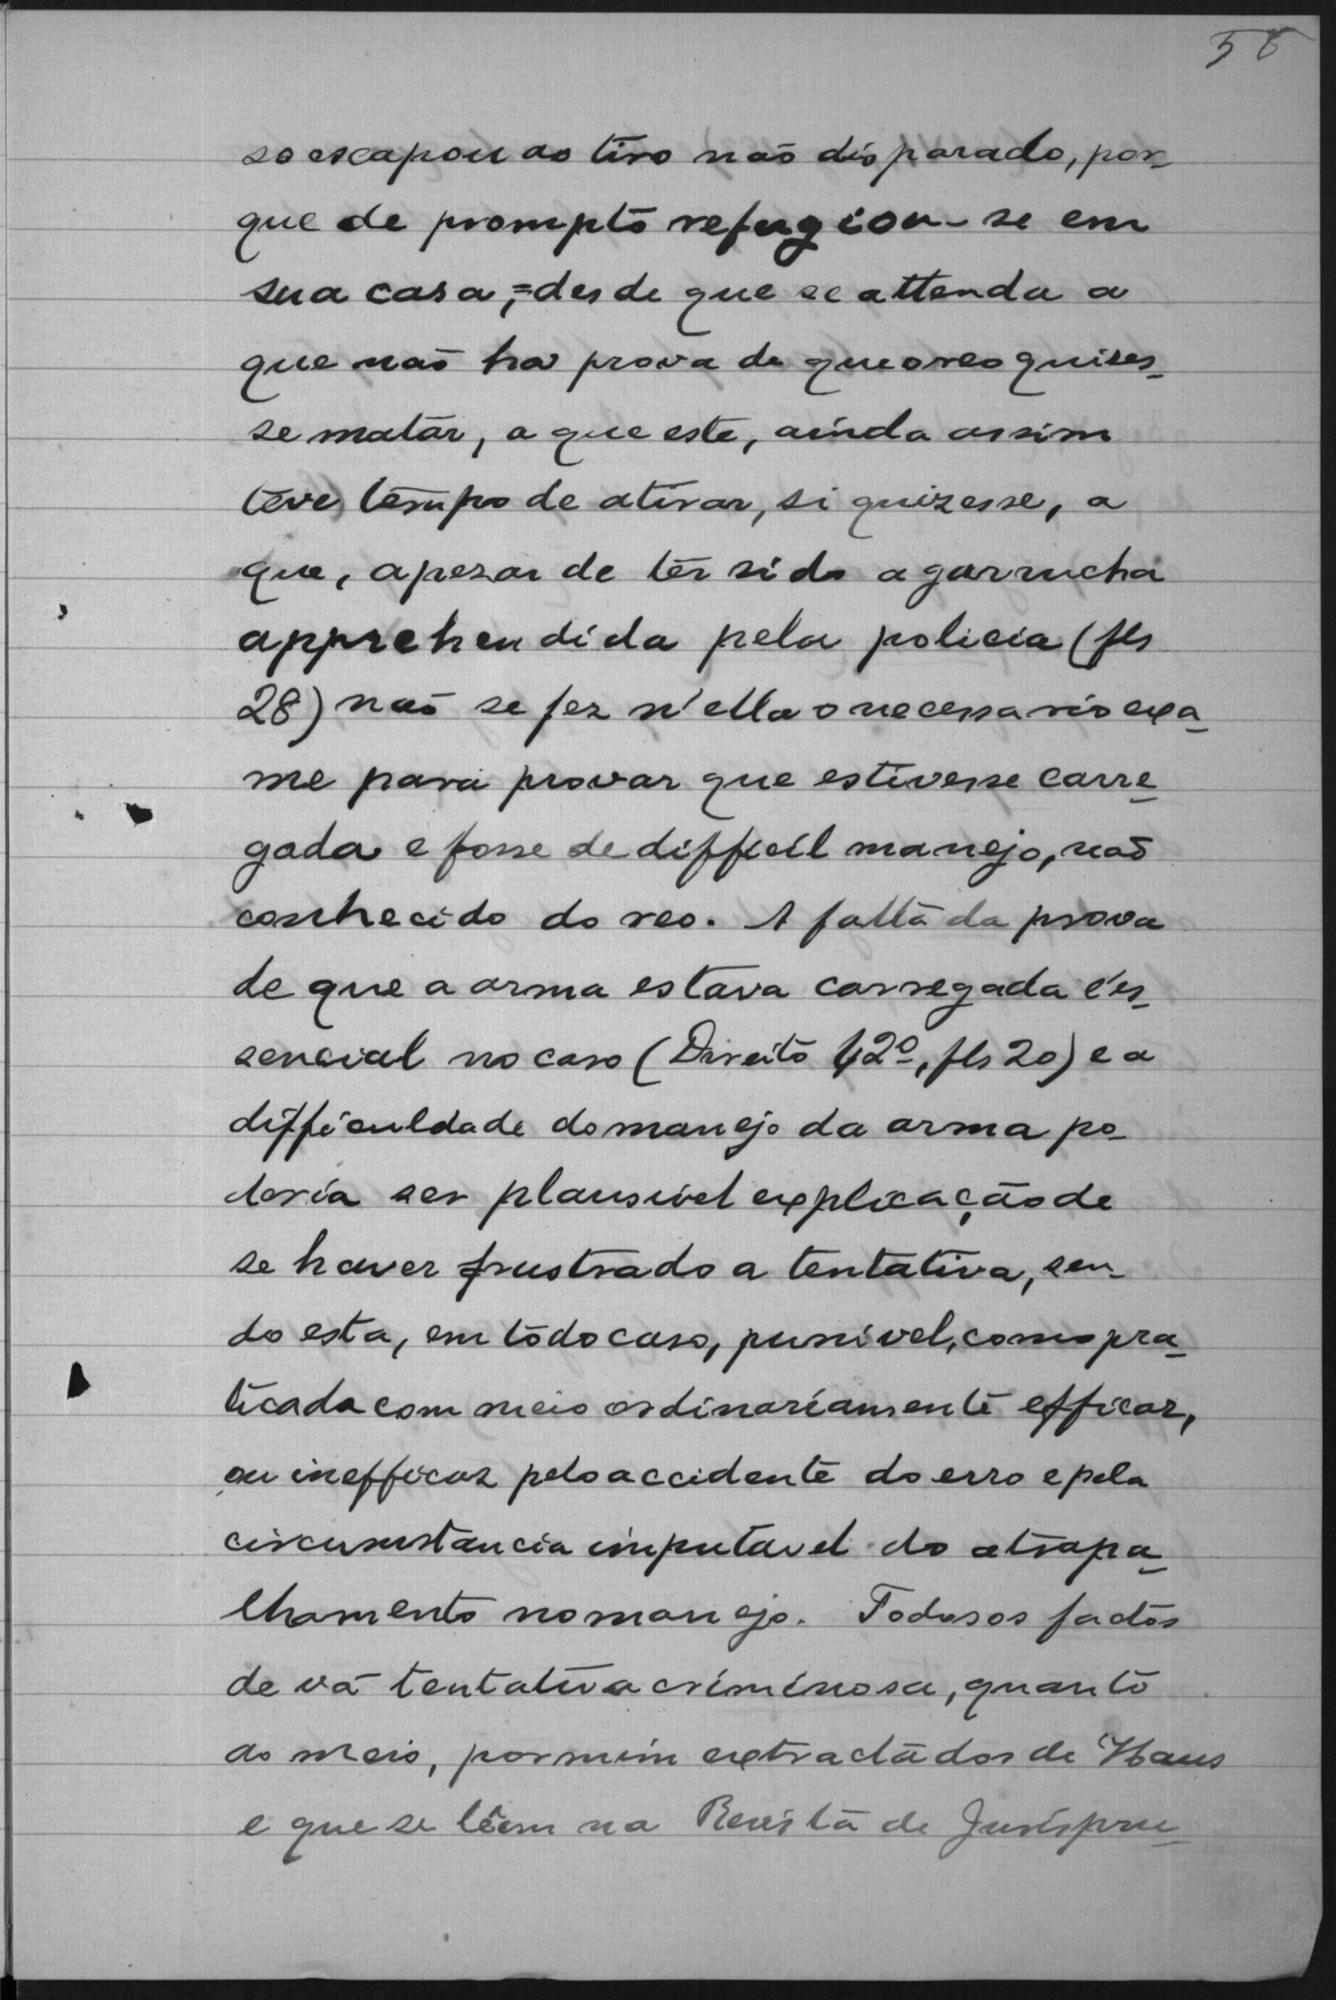 so escapou ao tiro não disparado, por-
que de prompto refugiou-se em
sua casa,=desde que se attenda a
que não ha prova de que o reo quises-
se matar, a que este, ainda assim
teve tempo de atirar, si quizesse, a
que, apezar de ter sido a garrucha
apprehendida pela policia (fls
28) não se fez n'ella o necessario exa-
me para provar que estivesse carre-
gada e fosse de difficil manejo, não
conhecido do reo. A falta da prova
de que a arma estava carregada é es-
sencial no caso (Direito 42º, fls 20) e a
difficuldade do manejo da arma po-
deria ser plausivel explicação de
se haver frustrado a tentativa, sen-
do esta, em todo caso, punivel, como pra-
ticada com meio ordinariamente efficaz,
ou inefficaz pelo accidente do erro e pela
circumstancia imputavel do atrapa-
lhamento no manejo. Todos os factos
de vã tentativa criminosa, quanto
ao meio, por mim extractados de Haus
e que se lêem na Revista de Jurispru-